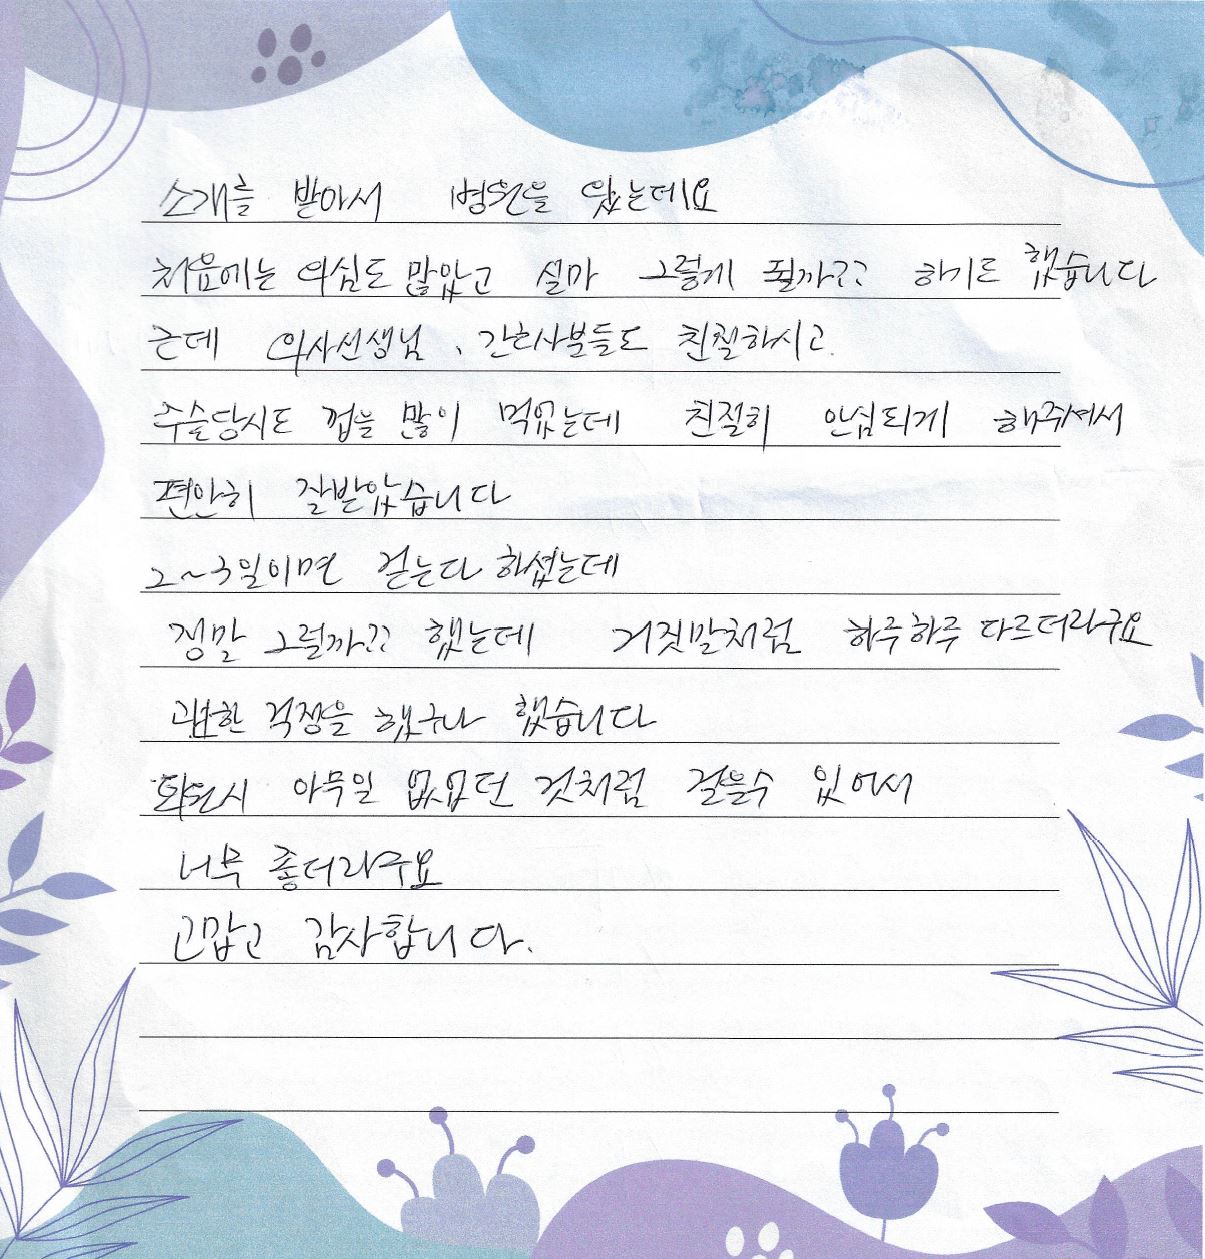 소개를 받아서 병원을 왔는데요
처음에는 의심도 많았고 설마 그렇게 될까?? 하기도 했습니다
근데 의사선생님, 간호사분들도 친절하시고.
수술당시도 겁을 많이 먹었는데 친절히 안심되게 해주셔서
편안히 잘받았습니다
2~3일이면 걷는다 하셨는데
정말 그럴까?? 했는데 거짓말처럼 하루하루 다르더라구요
괜한 걱정을 했구나 했습니다
퇴원시 아무일 없었던 것처럼 걸을수 있어서
너무 좋더라구요
고맙고 감사합니다.